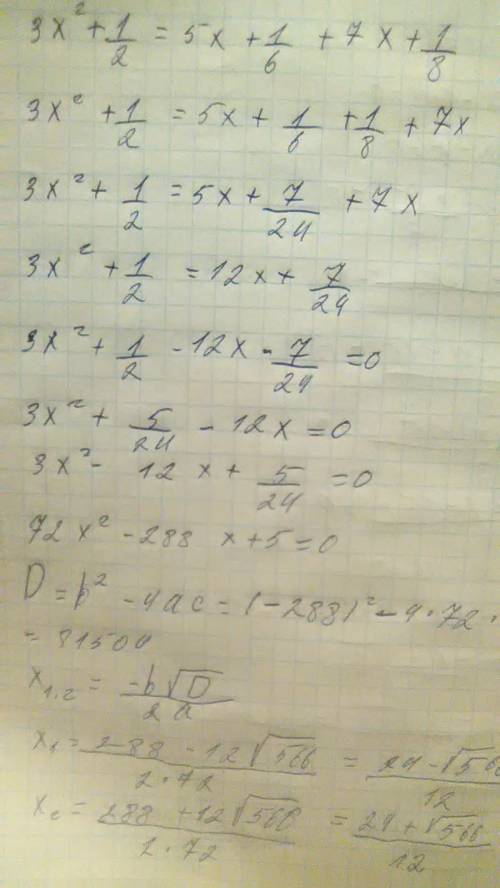 3x² + 1/2 = 5x + 1/6 + 7x + 1/8
3x² + 1/2 = 5x + 1/6 + 1/8 + 7x
3x² + 1/2 = 5x + 7/24 + 7x
3x² + 1/2 = 12x + 7/24
3x² + 1/2 - 12x - 7/24 = 0
3x² + 5/24 - 12x = 0
3x² - 12x + 5/24 = 0
72x² - 288x + 5 = 0
D = b² - 4ac = (-288)² - 4·72·
= 81504
x₁,₂ = -b√D / 2a
x₁ = 288 - 12√566 / 2·72 = 24 - √566 / 12
x₂ = 288 + 12√566 / 2·72 = 24 + √566 / 12